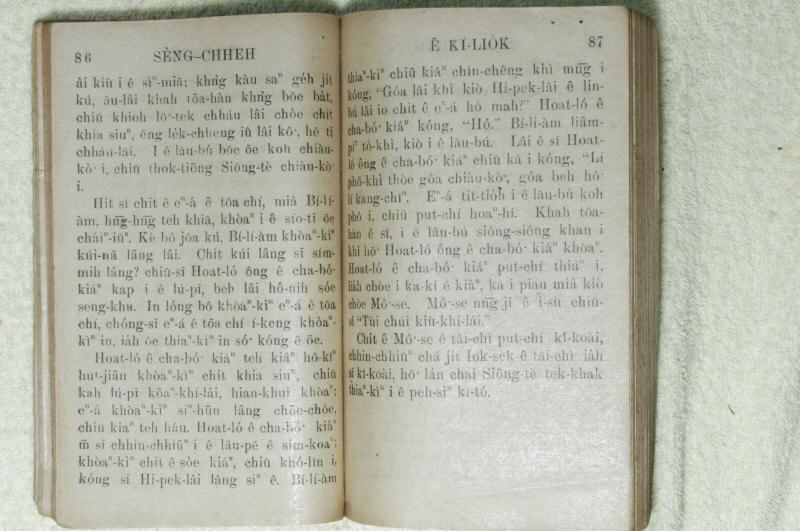 86
SÈNG-CHHEH
ài kiù i ê sìⁿ-miā; khǹg kàu saⁿ ge̍h ji̍t
kú, āu-lâi khah tōa-hàn khǹg bōe bat,
chiū khioh lô·-tek chháu lâi chòe chi̍t
khia siuⁿ, ēng le̍k-chheng iû lâi kô·, hē tī
chháu-lāi. I ê lāu-bú bōe ōe koh chiàu-
kò· i, chiū thok-tiōng Siōng-tè chiàu-kò·
i.
Hit sî chit ê eⁿ-á ê tōa chí, miâ Bí-lí-
àm, hn̄g-hn̄g teh khiā, khòaⁿ i ê sió-tī ōe
cháiⁿ-iūⁿ. Kè bô jōa kú, Bí-lí-àm khòaⁿ-kìⁿ
kúi-nā lâng lâi. Chit kúi lâng sī sím-
mih lâng? chiū-sī Hoat-ló ông ê cha-bó·-
kiáⁿ kap i ê lú-pī, beh lâi hô-ni̍h sóe
seng-khu. In lóng bô khòaⁿ-kìⁿ eⁿ-á ê tōa
chí, chóng-sī eⁿ-á ê tōa chí í-keng khòaⁿ-
kìⁿ in, ia̍h ōe thiaⁿ-kìⁿ in só· kóng ê ōe.
Hoat-ló ê cha-bó· kiáⁿ teh kiâⁿ hô-kîⁿ
hut-jiân khòaⁿ-kìⁿ chi̍t khia siuⁿ, chiū
kah lú-pī kōaⁿ-khí-lâi, hian-khui khòaⁿ;
eⁿ-á khòaⁿ-kìⁿ siⁿ-hūn lâng chōe-chōe,
chiū kiaⁿ teh háu. Hoat-ló ê cha-bó· kiáⁿ
m̄ sī chhin-chhiūⁿ i ê lāu-pē ê sim-koaⁿ;
khòaⁿ-kìⁿ chit ê sòe kiáⁿ, chiū khó-lîn i,
kóng sī Hi-pek-lâi lâng siⁿ ê. Bí-lí-àm
Ê KÌ-LIO̍K
87
thiaⁿ-kìⁿ chiū kiáⁿ chìn-chêng khì mn̄g i
kóng, “Góa lâi khì kiò Hi-pek-lâi ê lin-
bú lâi io chit ê eⁿ-á hó mah?” Hoat-ló ê
cha-bó· kiáⁿ kóng, “Hó.” Bí-lí-àm liâm-
piⁿ tò-khì, kiò i ê lāu-bú. Lâi ê sî Hoat-
ló ông ê cha-bó· kiáⁿ chiū kā i kóng, “Lí
phō-khì thòe góa chiàu-kò·, góa beh hō·
lí kang-chîⁿ. Eⁿ-á tit-tio̍h i ê lāu-bú koh
phō i, chiū put-chí hoaⁿ-hí. Khah tōa-
hàn ê sî, i ê lāu-bú siông-siông khan i
khì hō· Hoat-ló ông ê cha-bó· kiáⁿ khòaⁿ.
Hoat-ló ê cha-bó· kiáⁿ put-chí thiàⁿ i,
lia̍h chòe i ka-kī ê kiáⁿ, kā i piáu miâ kiò
chòe Mô·-se. Mô·-se nn̄g jī ê ì-sù chiū-
sī “Tùi chúi kiù-khí-lâi.”
Chit ê Mô·-se ê tāi-chì put-chí kî-koài,
chhin-chhiūⁿ chá ji̍t Iok-sek ê tāi-chì ia̍h
sī kî-koài, hō· lán chai Siōng-tè tek-khak
thiaⁿ-kìⁿ i ê peh-sìⁿ kî-tó.